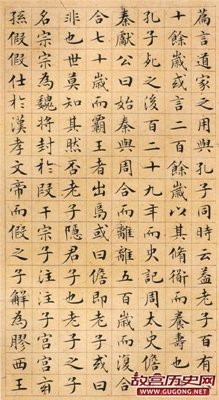 篇言道家之用與孔子同時云蓋老子百有六
十餘歲或言二百餘歲以其脩衟而養壽也自
孔子死之後百二十九年而史記周太史儋見
秦獻公曰始秦與周合而離離五百歲而復合
合七十歲而霸王者出焉或曰儋即老子或曰
非也世莫知其然否老子隱君子也老子之子
名宗宗為魏將封於段干宗子注注子宮宮玄
孫假假仕於漢孝文帝而假之子解為膠西王
故宫历史网
GUGONG.NET